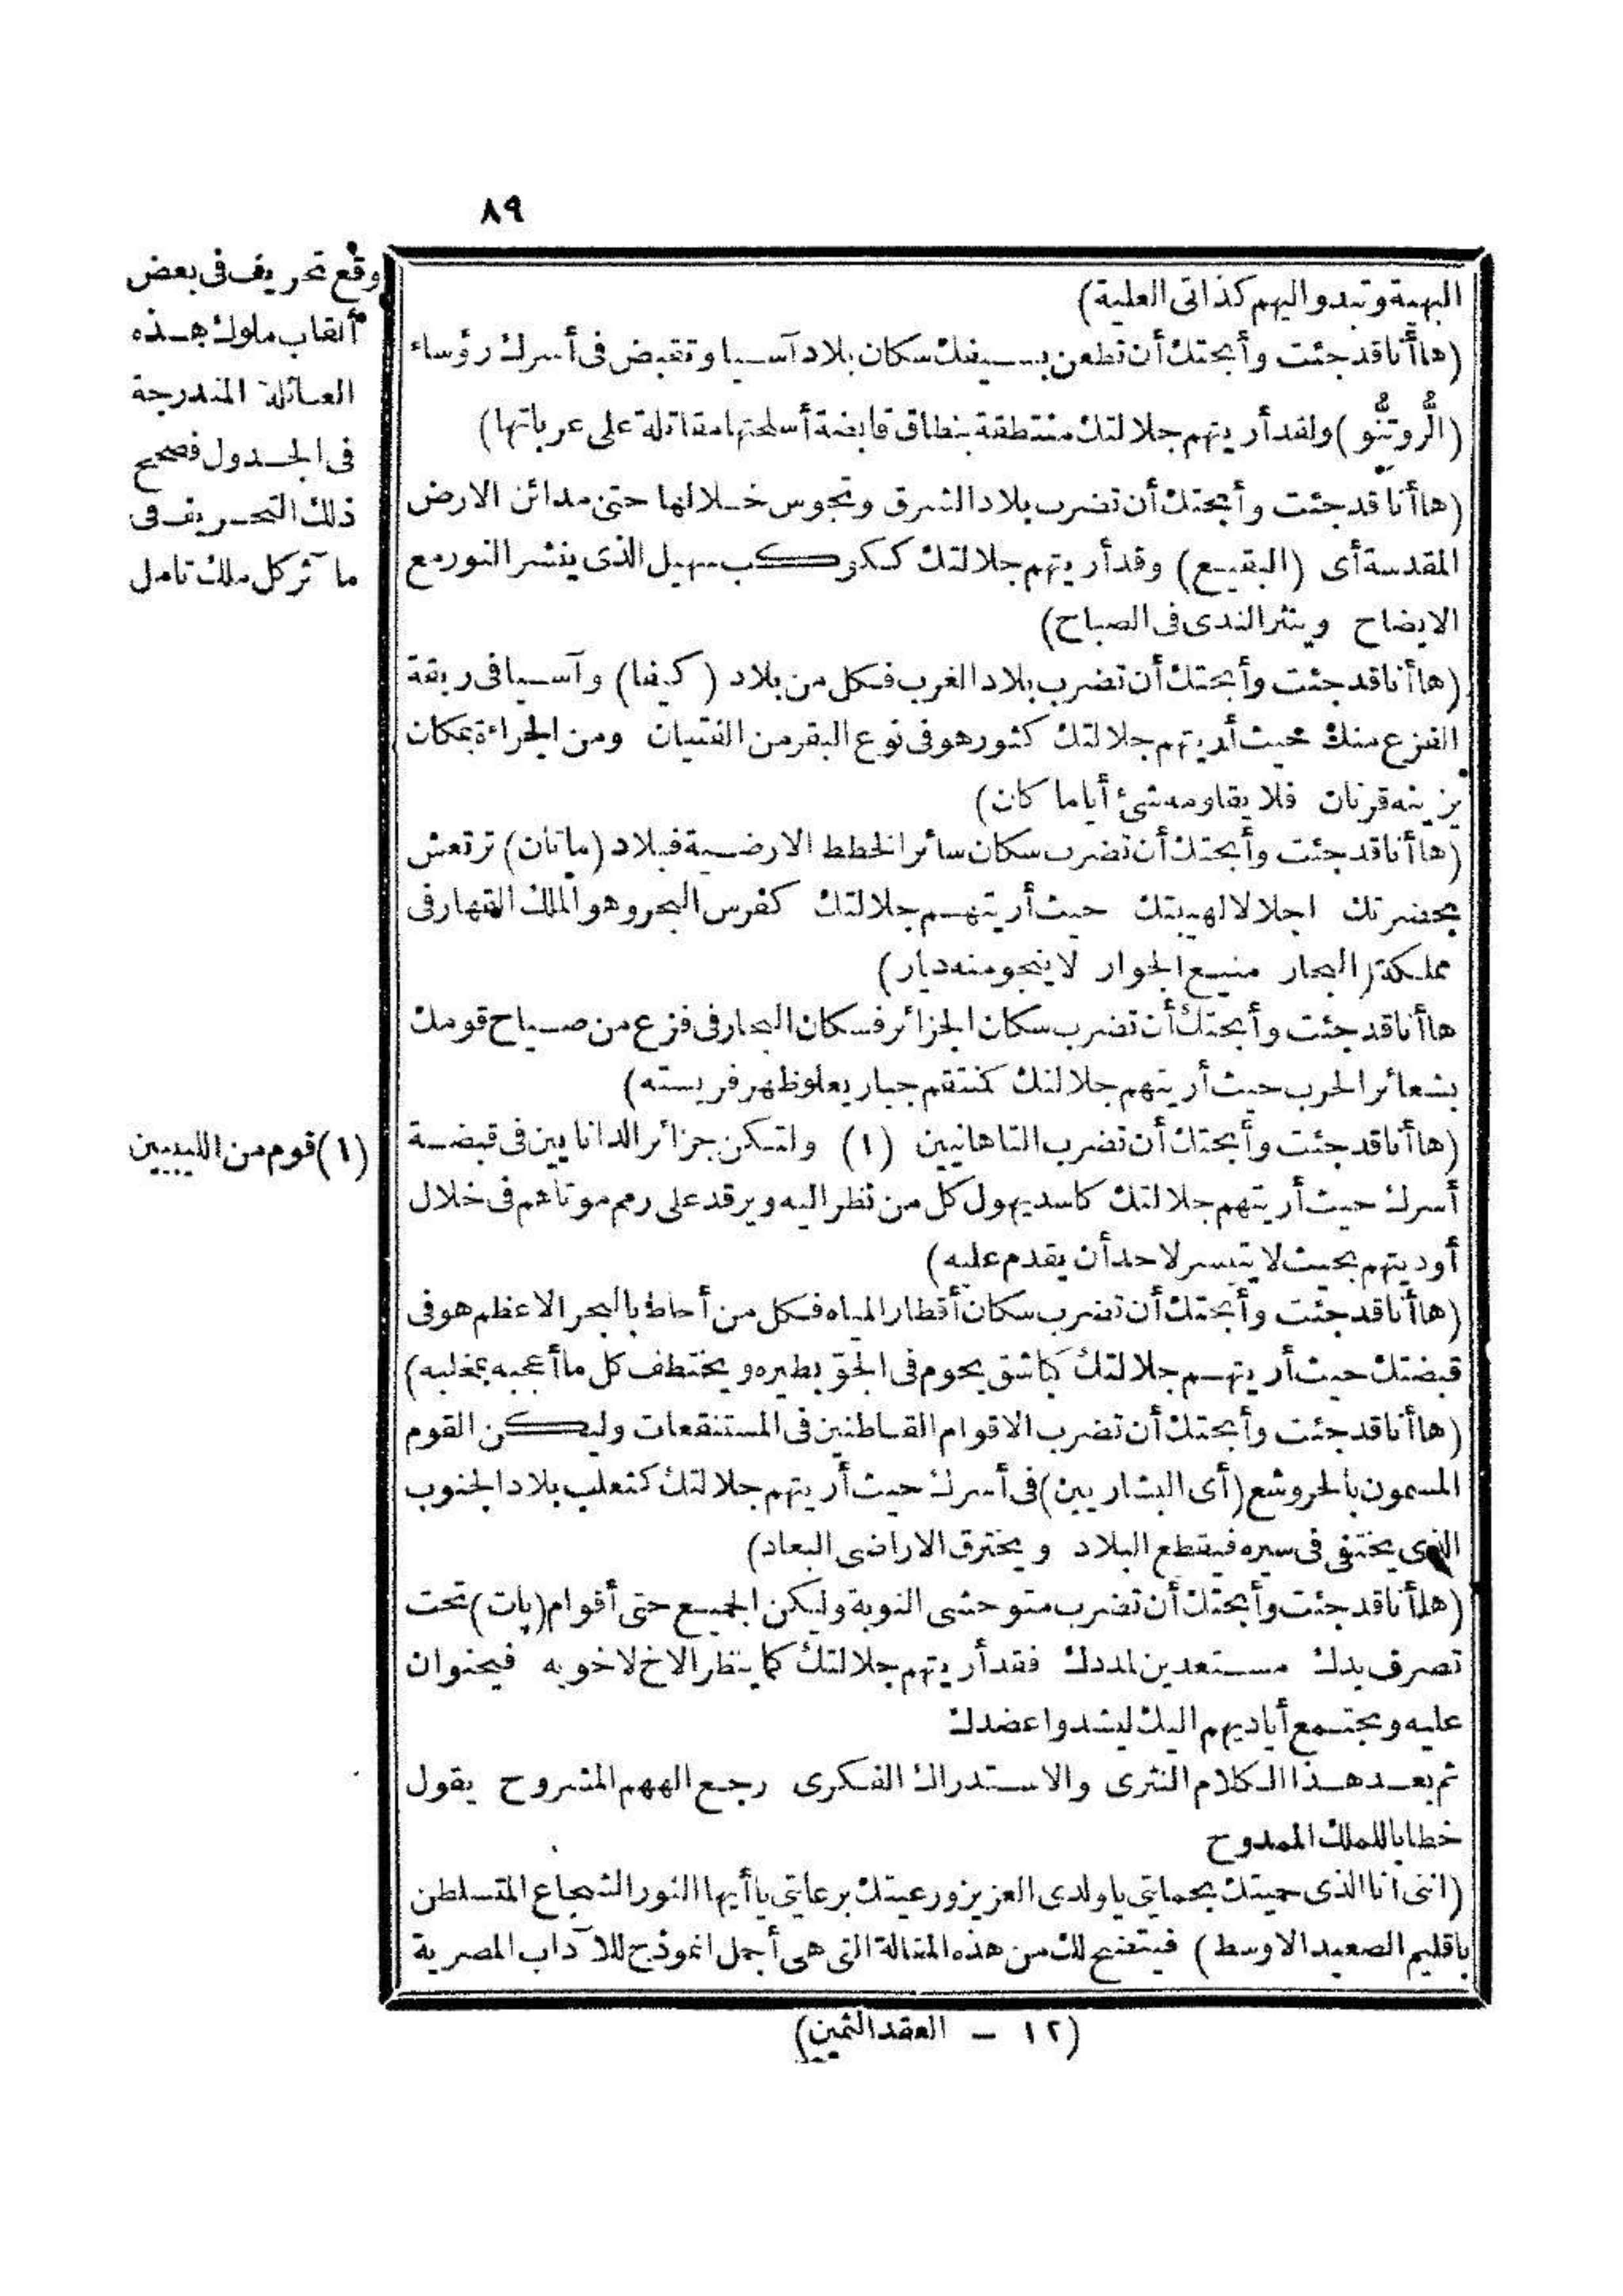 ٨٩
البهية وتبدو اليهم كذاتى العلية)
(ها أنا قد جئت وأبحتك أن تطعن بسيفك سكان بلاد آسيا وتقبض فى أسرك رؤساء
(الرُّوتِنُّو) ولقد أريتهم جلالتك منتطقة بنطاق قابضة أسلحتها مقاتلة على عرباتها)
(ها أنا قد جئت وأبحتك أن تضرب بلاد الشرق وتجوس خلالها حتى مدائن الارض
المقدسة أى (البقيع) وقد أريتهم جلالتك ككوكب سهيل الذى ينشر النور مع
الايضاح وينثر الندى فى الصباح)
(ها أنا قد جئت وأبحتك أن تضرب بلاد الغرب فكل من بلاد (كيفا) وآسيا فى ربقة
الفزع منك حيث أريتهم جلالتك كثور هو فى نوع البقر من الفتيان ومن الجراءة بمكان
يزينه قرنان فلا يقاومه شئ أياما كان)
(ها أنا قد جئت وأبحتك أن تضرب سكان سائر الخطط الارضية فبلاد (ماتان) ترتعش
بحضرتك اجلالا لهيبتك حيث أريتهم جلالتك كفرس البحر وهو الملك القهار فى
مملكة البحار منيع الجوار لا ينجو منه ديار)
ها أنا قد جئت وأبحتك أن تضرب سكان الجزائر فسكان البحار فى فزع من صياح قومك
بشعائر الحرب حيث أريتهم جلالتك كمنتقم جبار يعلو ظهر فريسته)
(ها أنا قد جئت وأبحتك أن تضرب التاهانيين (١) ولتكن جزائر الدانايين فى قبضة
أسرك حيث أريتهم جلالتك كاسد يهول كل من نظر اليه ويرقد على رمم موتاهم فى خلال
أوديتهم بحيث لا يتيسر لاحد أن يقدم عليه)
(ها أنا قد جئت وأبحتك أن تضرب سكان أقطار المياه فكل من أحاط بالبحر الاعظم هو فى
قبضتك حيث أريتهم جلالتك كباشق يحوم فى الجوّ بطيره ويختطف كل ما أعجبه بمخلبه)
(ها أنا قد جئت وأبحتك أن تضرب الاقوام القاطنين فى المستنقعات وليكن القوم
المسمون بالحروشع (أى البشاريين) فى أسرك حيث أريتهم جلالتك كثعلب بلاد الجنوب
الذى يختفى فى سيره فيقطع البلاد ويخترق الاراضى البعاد)
(ها أنا قد جئت وأبحتك أن تضرب متوحشى النوبة وليكن الجميع حتى أقوام (پات) تحت
تصرف يدك مستعدين لمددك فقد أريتهم جلالتك كما ينظر الاخ لاخويه فيحنوان
عليه وبجتمع أياديهم اليك ليشدوا عضدك
ثم بعد هذا الكلام النثرى والاستدراك الفكرى رجع الههم المشروح يقول
خطابا للملك الممدوح
(اننى أنا الذى حميتك بحمايتى يا ولدى العزيز ورعيتك برعايتى يا أيها الثور الشجاع المتسلطن
باقليم الصعيد الاوسط) فيتضح لك من هذه المقالة التى هى أجمل انموذج للآداب المصرية
(١٢ – العقد الثمين)
وقع تحريف فى بعض
ألقاب ملوك هذه
العائلة المندرجة
فى الجدول فصحح
ذلك التحريف فى
مآثر كل ملك تامل
(١) قوم من الليبيين